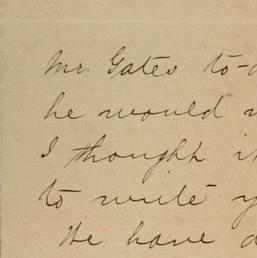 Mr. Gates to-
he would
I thought
to write
We have